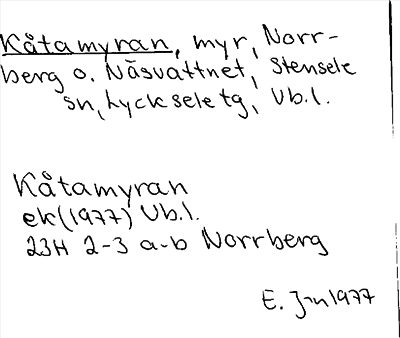 Kåtamyran, myr, Norr-
berg o. Näsvattnet, Stensele
sn, Lycksele tg, Vb.l.
Kåtamyran
ek (1977) Vb.l.
23H 2-3 a-b Norrberg
E. Jn 1977